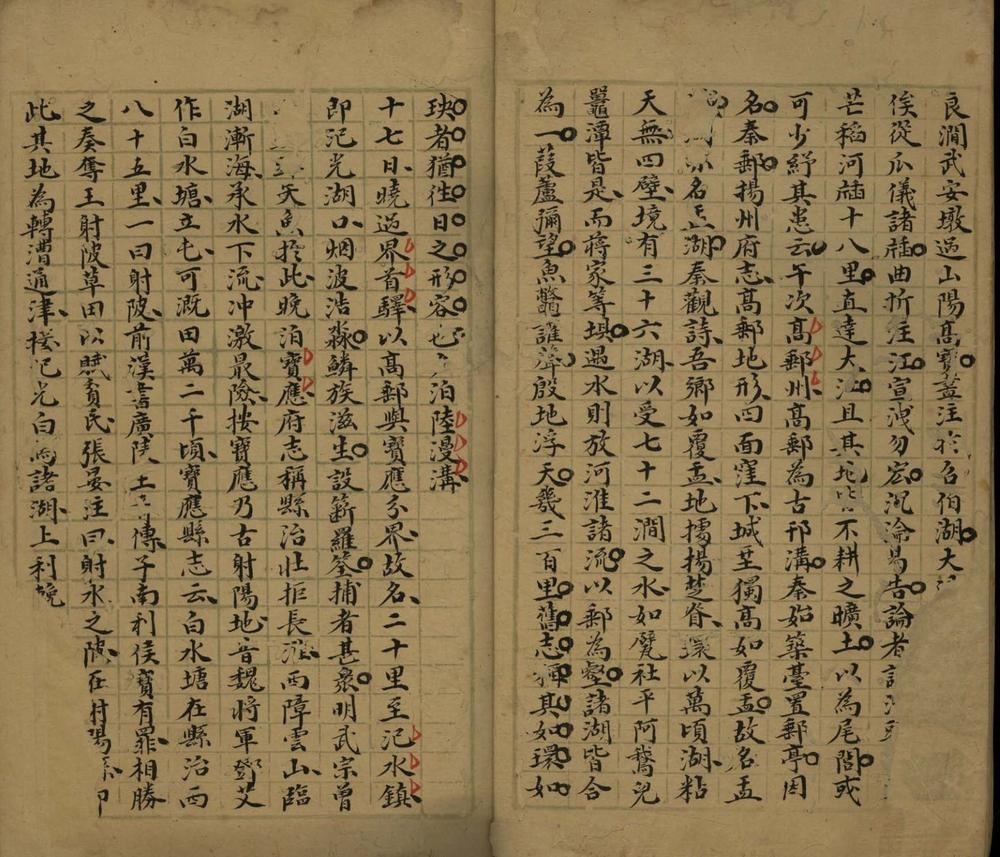 良澗武安墩過山陽高寶葢注於召伯湖大
俟從瓜儀諸牐曲折注江宣洩勿宏沉淪易告論者
芒稻河牐十八里直達大江且其地 不耕之曠土以為尾閭或
可少紓其患云午次高郵州高郵為古邗溝秦始築臺置郵亭因
名秦郵揚州府志高郵地形四面窪下城基獨高如覆盂故名盂
名玉湖秦觀詩吾鄉如覆盂地據揚楚脊環以萬頃湖粘
天無四壁境有三十六湖以受七十二澗之水如甓社平阿鵞兒
鼉潭皆是而蔣家等垻遇水則放河淮諸流以郵為壑諸湖皆合
為一葭蘆彌望魚鼈誰聲殷地浮天幾三百里舊志稱其如環如
玦者猶徃日之形容也 泊陸漫溝
十七日曉過界首驛以高郵與寶應分界故名二十里至氾水鎮
即氾光湖口烟波浩淼鱗族滋生設簖羅筌捕者甚衆明武宗曾
矢魚於此晚泊寶應府志稱縣治壯拒長淮西障雲山臨
湖漸海承水下流冲激最險按寶應乃古射陽地音魏將軍鄧艾
作白水塘立屯可溉田萬二千頃寶應縣志云白水塘在縣治西
八十五里一曰射陂前漢書廣陵王 傳子南利侯寶有罪相勝
之奏奪王射陂草田以賦貧民張晏注曰射水之陂在射陽
此其地為轉漕通津接氾光白馬諸湖上利輓